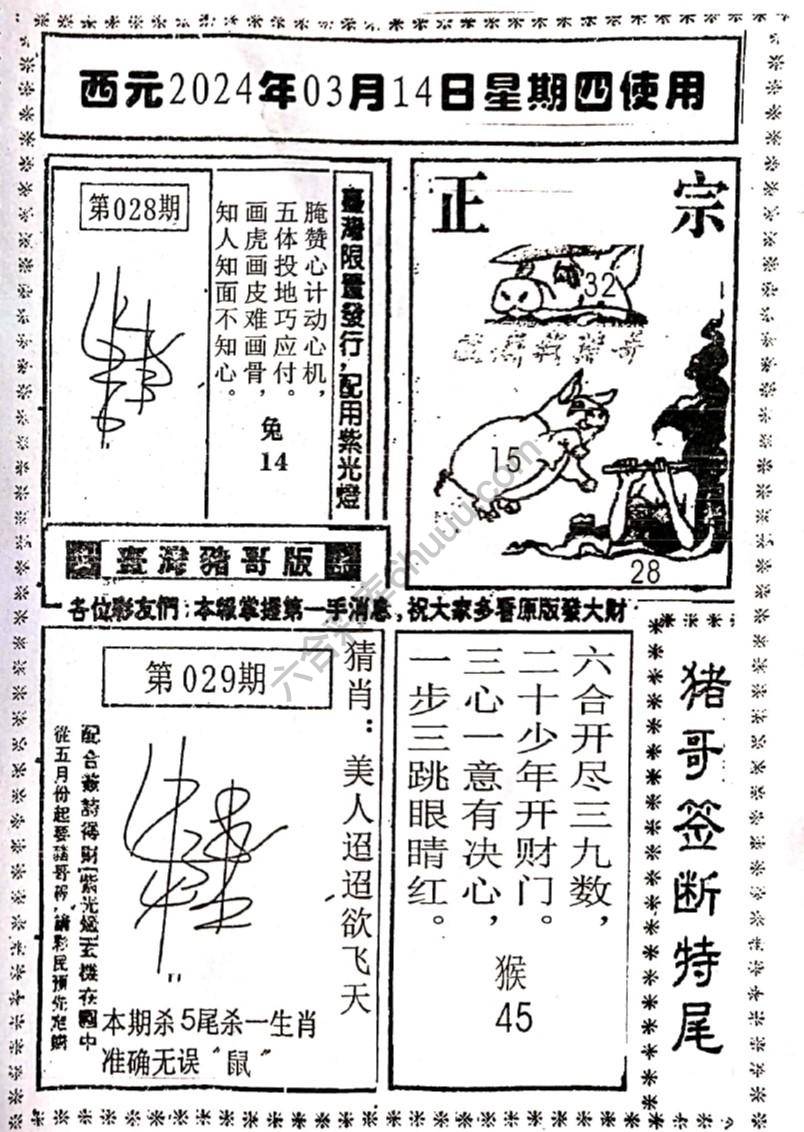 西元2024年03月14日星期四使用
第028期
臺灣限量發行，配用紫光燈
腌赞心计动心机，
五体投地巧应付。
画虎画皮难画骨，
知人知面不知心。
兔
14
正宗
32
15
28
臺灣豬哥版
各位彩友們：本報掌握第一手消息，祝大家多看原版發大財
第029期
猜肖：美人迢迢欲飞天
配合簽詩得財(紫光燈)玄機在圖中
從五月份起要豬哥報，請彩民預先定購
本期杀5尾杀一生肖
准确无误"鼠"
六合开尽三九数，
二十少年开财门。
三心一意有决心，
一步三跳眼睛红。
猴
45
猪哥签断特尾
六合彩库chuuu.com